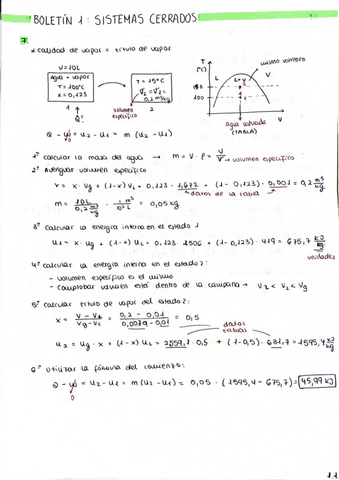 BOLETÍN 1: SISTEMAS CERRADOS
7
* calidad de vapor = título de vapor
V = 10L
agua + vapor
T = 100°C
x = 0,123
1
Q?
T = 15°C
2
volumen específico
T (°C)
mismo volumen
L
L+V
V
1
2
V
agua saturada
(TABLA)
Q - W = U2 - U1 = m (u2 - u1)
0
1º calcular la masa del agua → m = V · ρ = V/v → volumen específico
2º Averiguar volumen específico
v = x · vg + (1-x) vL = 0,123 · 1,672 + (1 - 0,123) · 0,001 = 0,2 m³/kg
datos de la tabla
m = 10L / 0,2 m³/kg · 1 m³/10³ L = 0,05 kg
3º calcular la energía interna en el estado 1
u1 = x · ug + (1-x) uL = 0,123 · 2506 + (1-0,123) · 419 = 675,7 kJ/kg
unidades
4º calcular la energía interna en el estado 2:
- volumen específico es el mismo
- comprobar volumen está dentro de la campana → vL < v2 < vg
5º calcular título de vapor del estado 2:
x = v - vL / vg - vL = 0,2 - 0,01 / 0,0039 - 0,01 = 0,5
datos tablas
u2 = ug · x + (1-x) uL = 2559,1 · 0,5 + (1-0,5) · 631,7 = 1595,4 kJ/kg
6º utilizar la fórmula del comienzo:
Q - W = U2 - U1 = m (u2 - u1) = 0,05 · (1595,4 - 675,7) = 45,99 kJ
0
1.1